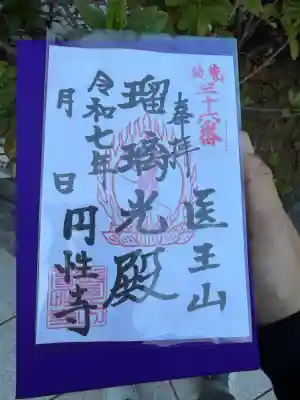 第三十六番
奉拝
医王山
瑠璃光殿
令和七年
月 日
円性寺